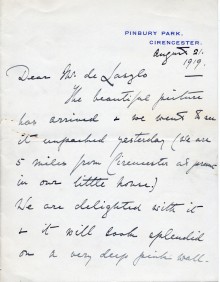 PINBURY PARK,
CIRENCESTER.
August 21.
1919.
Dear Mr de Laszlo
The beautiful picture
has arrived & we went to see
it unpacked yesterday (we are
5 miles from Cirencester at present
in our little house.)
We are delighted with it
& it will look splendid
on a very deep pink wall.